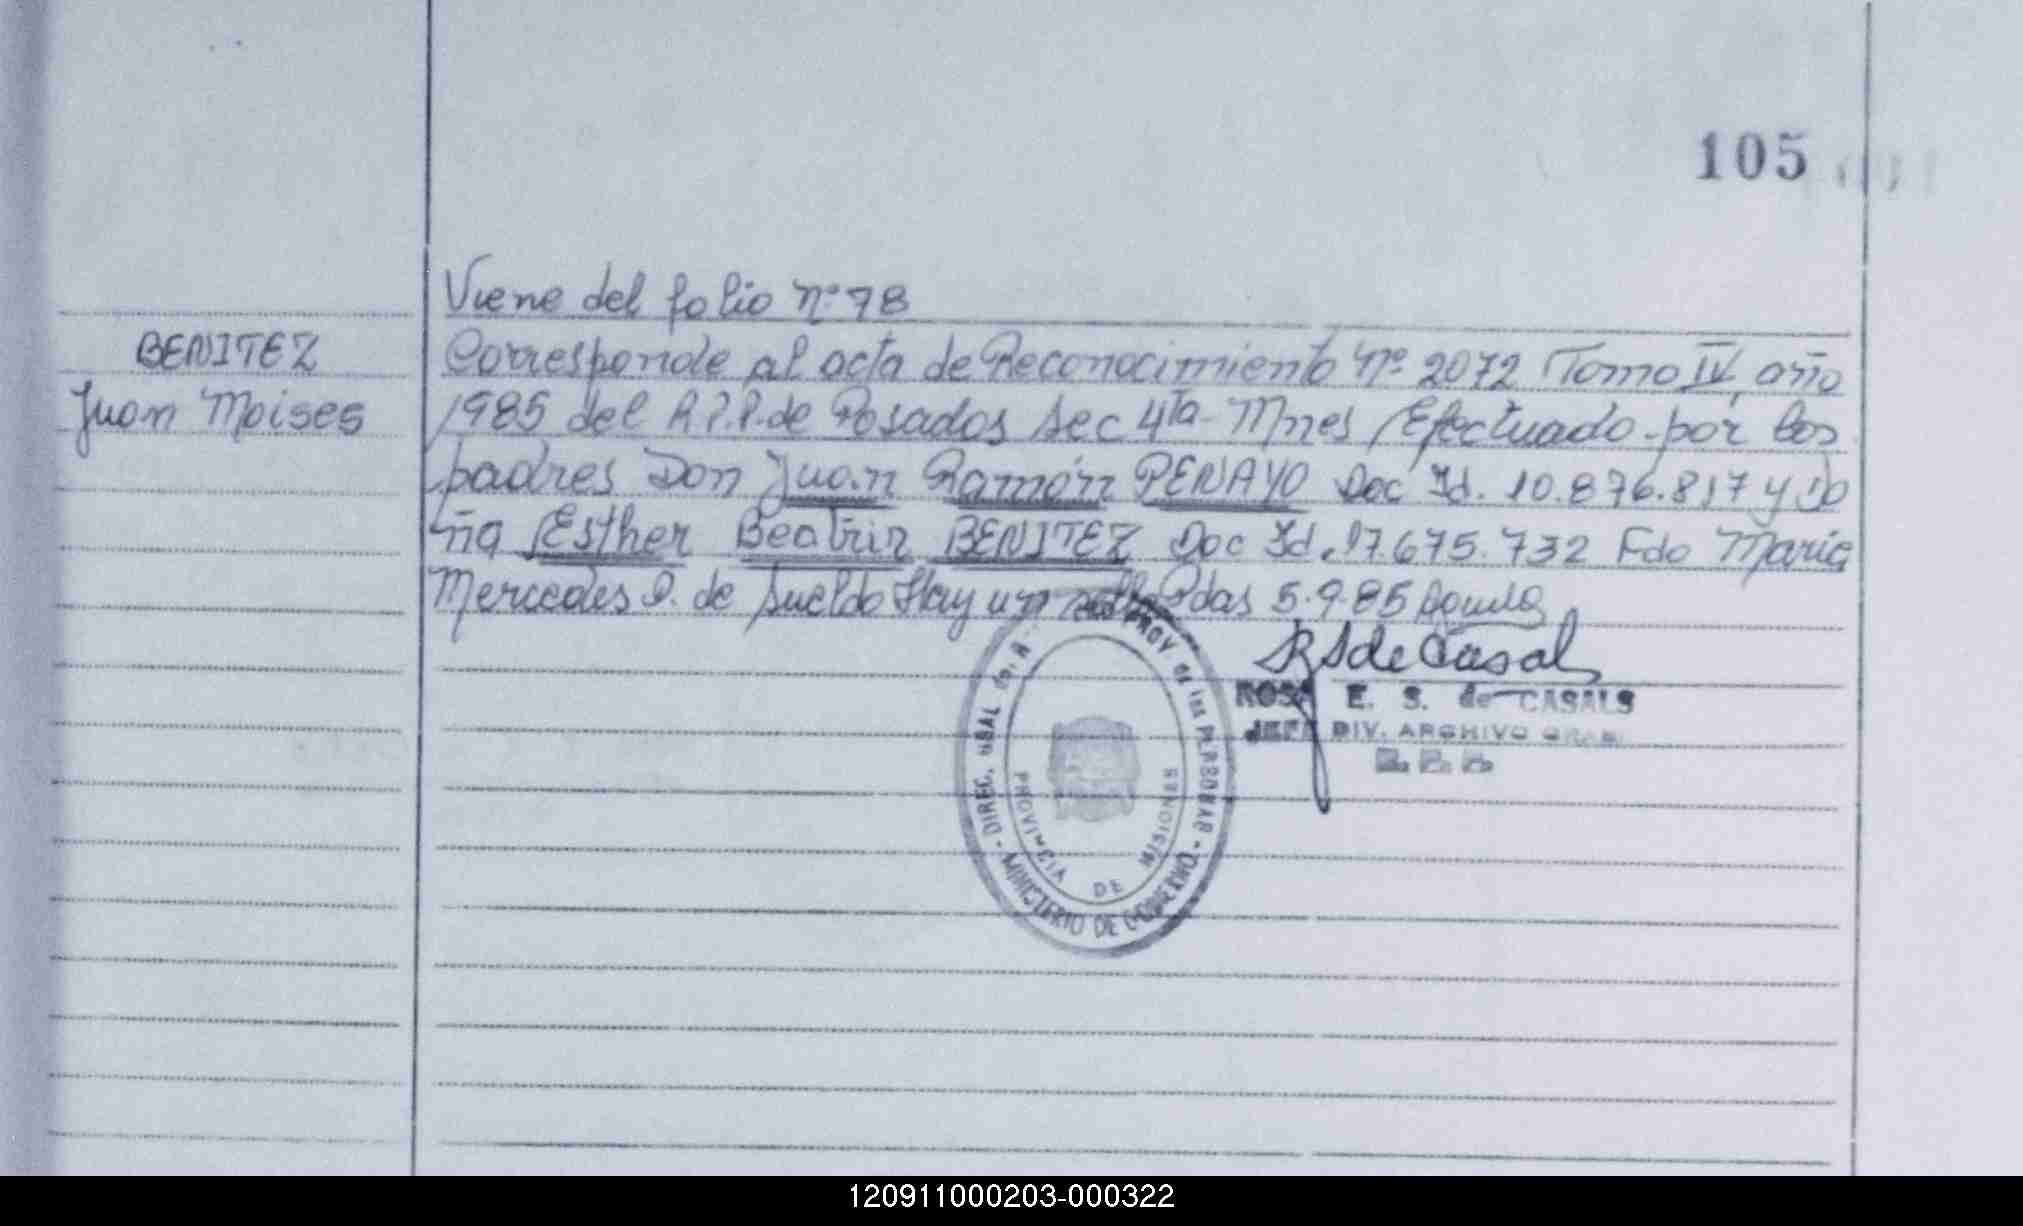 105
Viene del folio nº 78
BENITEZ
Juan Moises
Corresponde al acta de Reconocimiento Nº 2072 Tomo IV, año
1985 del R.P.P. de Posadas Sec 4ta Mnes Efectuado por los
padres Don Juan Ramón PENAYO Doc Id. 10.876.817 y Do
ña Esther Beatriz BENITEZ Doc Id. 17.675.732 Fdo Maria
Mercedes de Sueldo Hay un Pdas 5.9.85
RSde Casal
ROSA E. S. de CASALS
JEFA DIV. ARCHIVO GRAL
DIREC. GRAL PROV de las PERSONAS - MINISTERIO DE GOBIERNO
PROVINCIA DE MISIONES
120911000203-000322